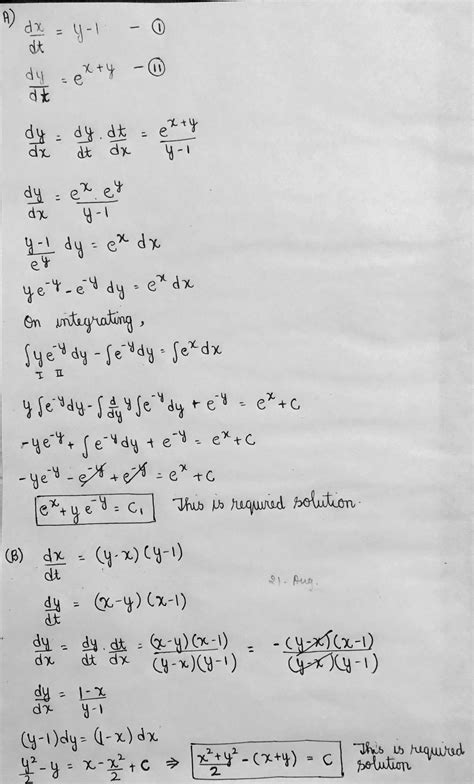 A)
dx/dt = y-1 - (I)
dy/dt = e^(x+y) - (II)
dy/dx = dy/dt . dt/dx = e^(x+y)/(y-1)
dy/dx = e^x . e^y/(y-1)
(y-1)/e^y dy = e^x dx
ye^-y - e^-y dy = e^x dx
On integrating,
∫ye^-y dy - ∫e^-y dy = ∫e^x dx
I II
y∫e^-y dy - ∫ d/dy y ∫e^-y dy + e^-y = e^x + c
-ye^-y + ∫e^-y dy + e^-y = e^x + c
-ye^-y - e^-y + e^-y = e^x + c
e^x + ye^-y = C₁ This is required solution.
(B) dx/dt = (y-x)(y-1)
21- Aug.
dy/dt = (x-y)(x-1)
dy/dx = dy/dt . dt/dx = (x-y)(x-1)/(y-x)(y-1) = -(y-x)(x-1)/(y-x)(y-1)
dy/dx = (1-x)/(y-1)
(y-1)dy = (1-x)dx
y²/2 - y = x - x²/2 + c ⇒ (x²+y²)/2 - (x+y) = C This is required solution